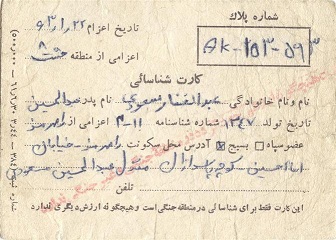 شماره پلاك
AK-153-593
تاریخ اعزام ۶۳/۱/۲۲
اعزامی از منطقه هشت ۸
كارت شناسائی
نام و نام خانوادگی عبدالغفار مسعودی نام پدر عبدالحسین
تاریخ تولد ۱۳۴۷ شماره شناسنامه ۳۰۱۱ از رامهرمز
عضو سپاه بسیج آدرس محل سكونت رامهرمز - خیابان
امام حسین كوچه پاسداران منزل عبدالحسین مسعودی
تلفن
این كارت فقط برای شناسائی در منطقه جنگی است و هیچگونه ارزش دیگری ندارد